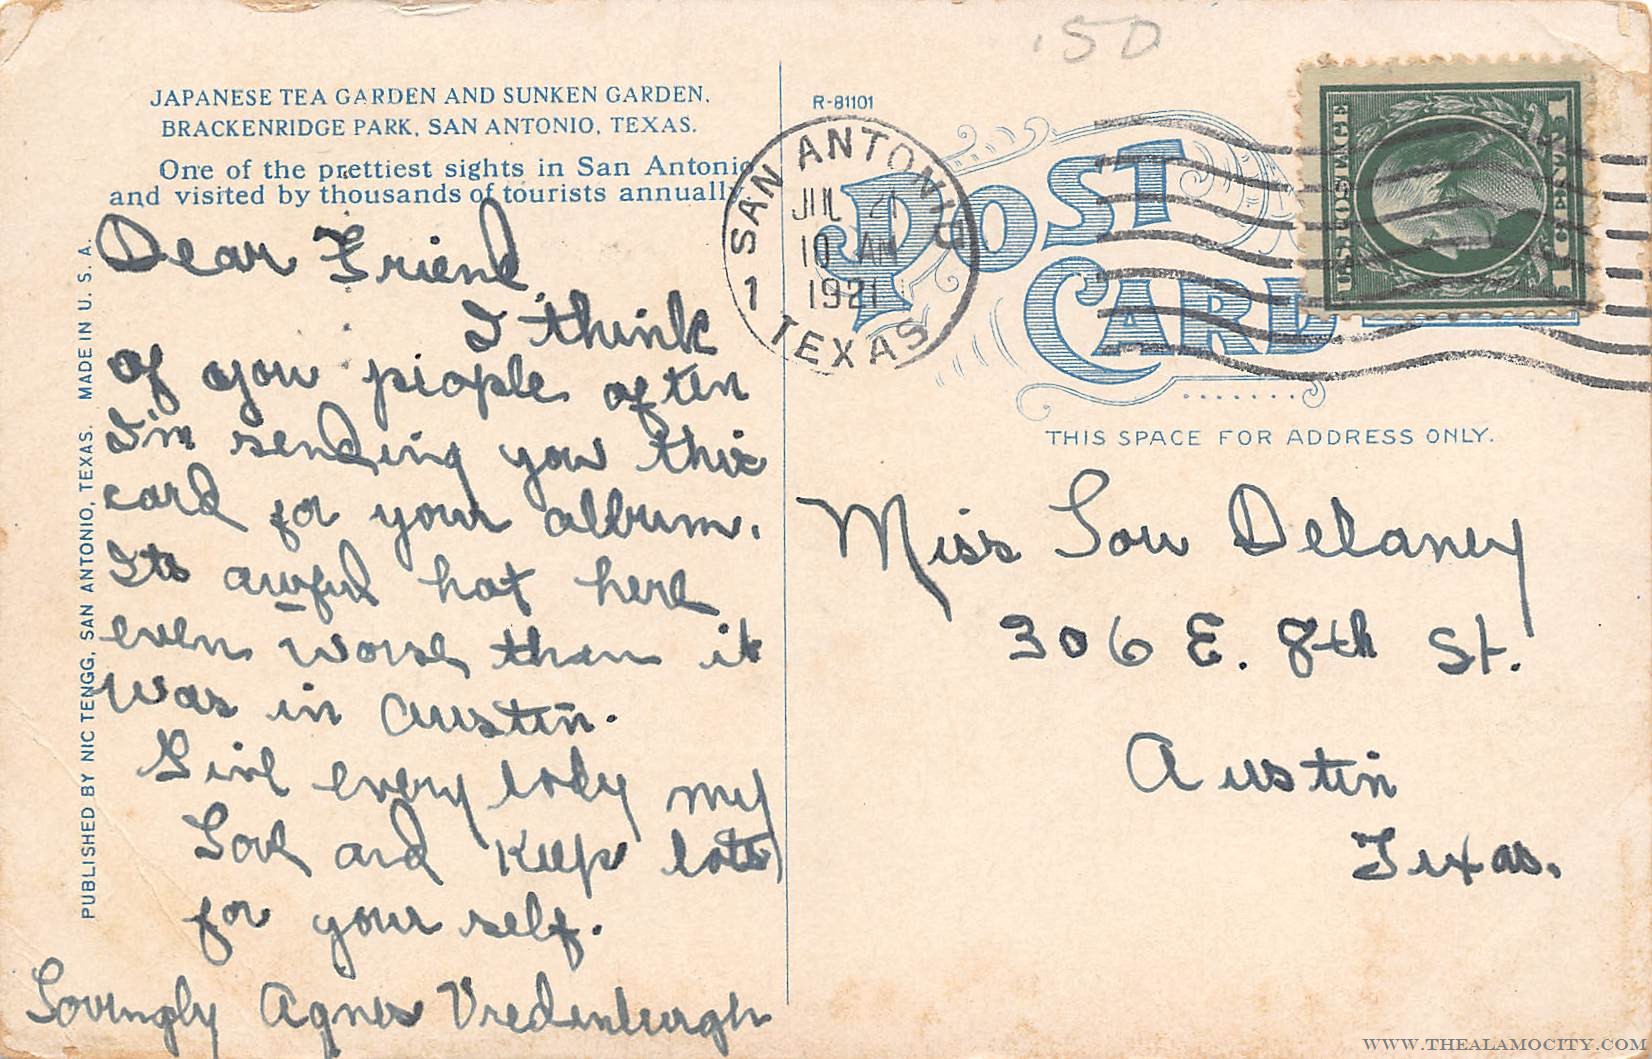 .50
JAPANESE TEA GARDEN AND SUNKEN GARDEN.
BRACKENRIDGE PARK, SAN ANTONIO, TEXAS.
One of the prettiest sights in San Antonio
and visited by thousands of tourists annually.
Dear Friend
I think
of you people often
I'm sending you this
card for your album.
Its awful hot here
even worse than it
was in Austin.
Give every body my
Love and Keep lots
for your self.
Lovingly Agnes Vredenburgh
PUBLISHED BY NIC TENGG, SAN ANTONIO, TEXAS. MADE IN U. S. A.
R-81101
SAN ANTONIO
JUL 21
10 AM
1921
1 TEXAS
POST
CARD
U.S. POSTAGE
1 CENT 1
THIS SPACE FOR ADDRESS ONLY.
Miss Lou Delaney
306 E. 8th St.
Austin
Texas.
WWW.THEALAMOCITY.COM